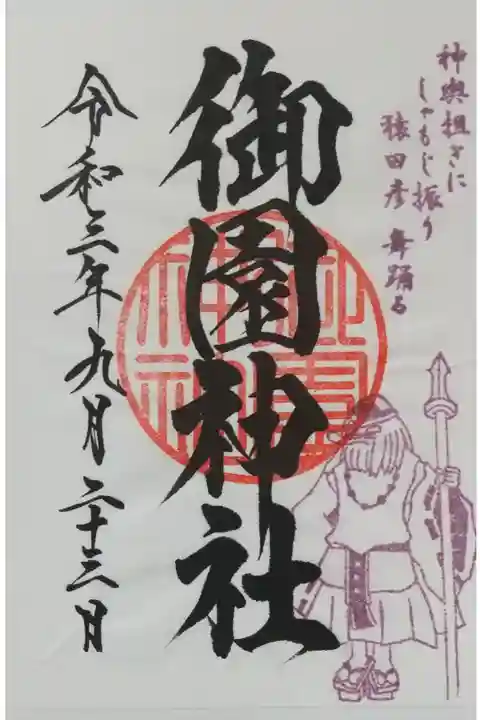 神輿担ぎに
しゃもじ振り
猿田彦 舞踊る
御園神社
令和三年九月二十三日